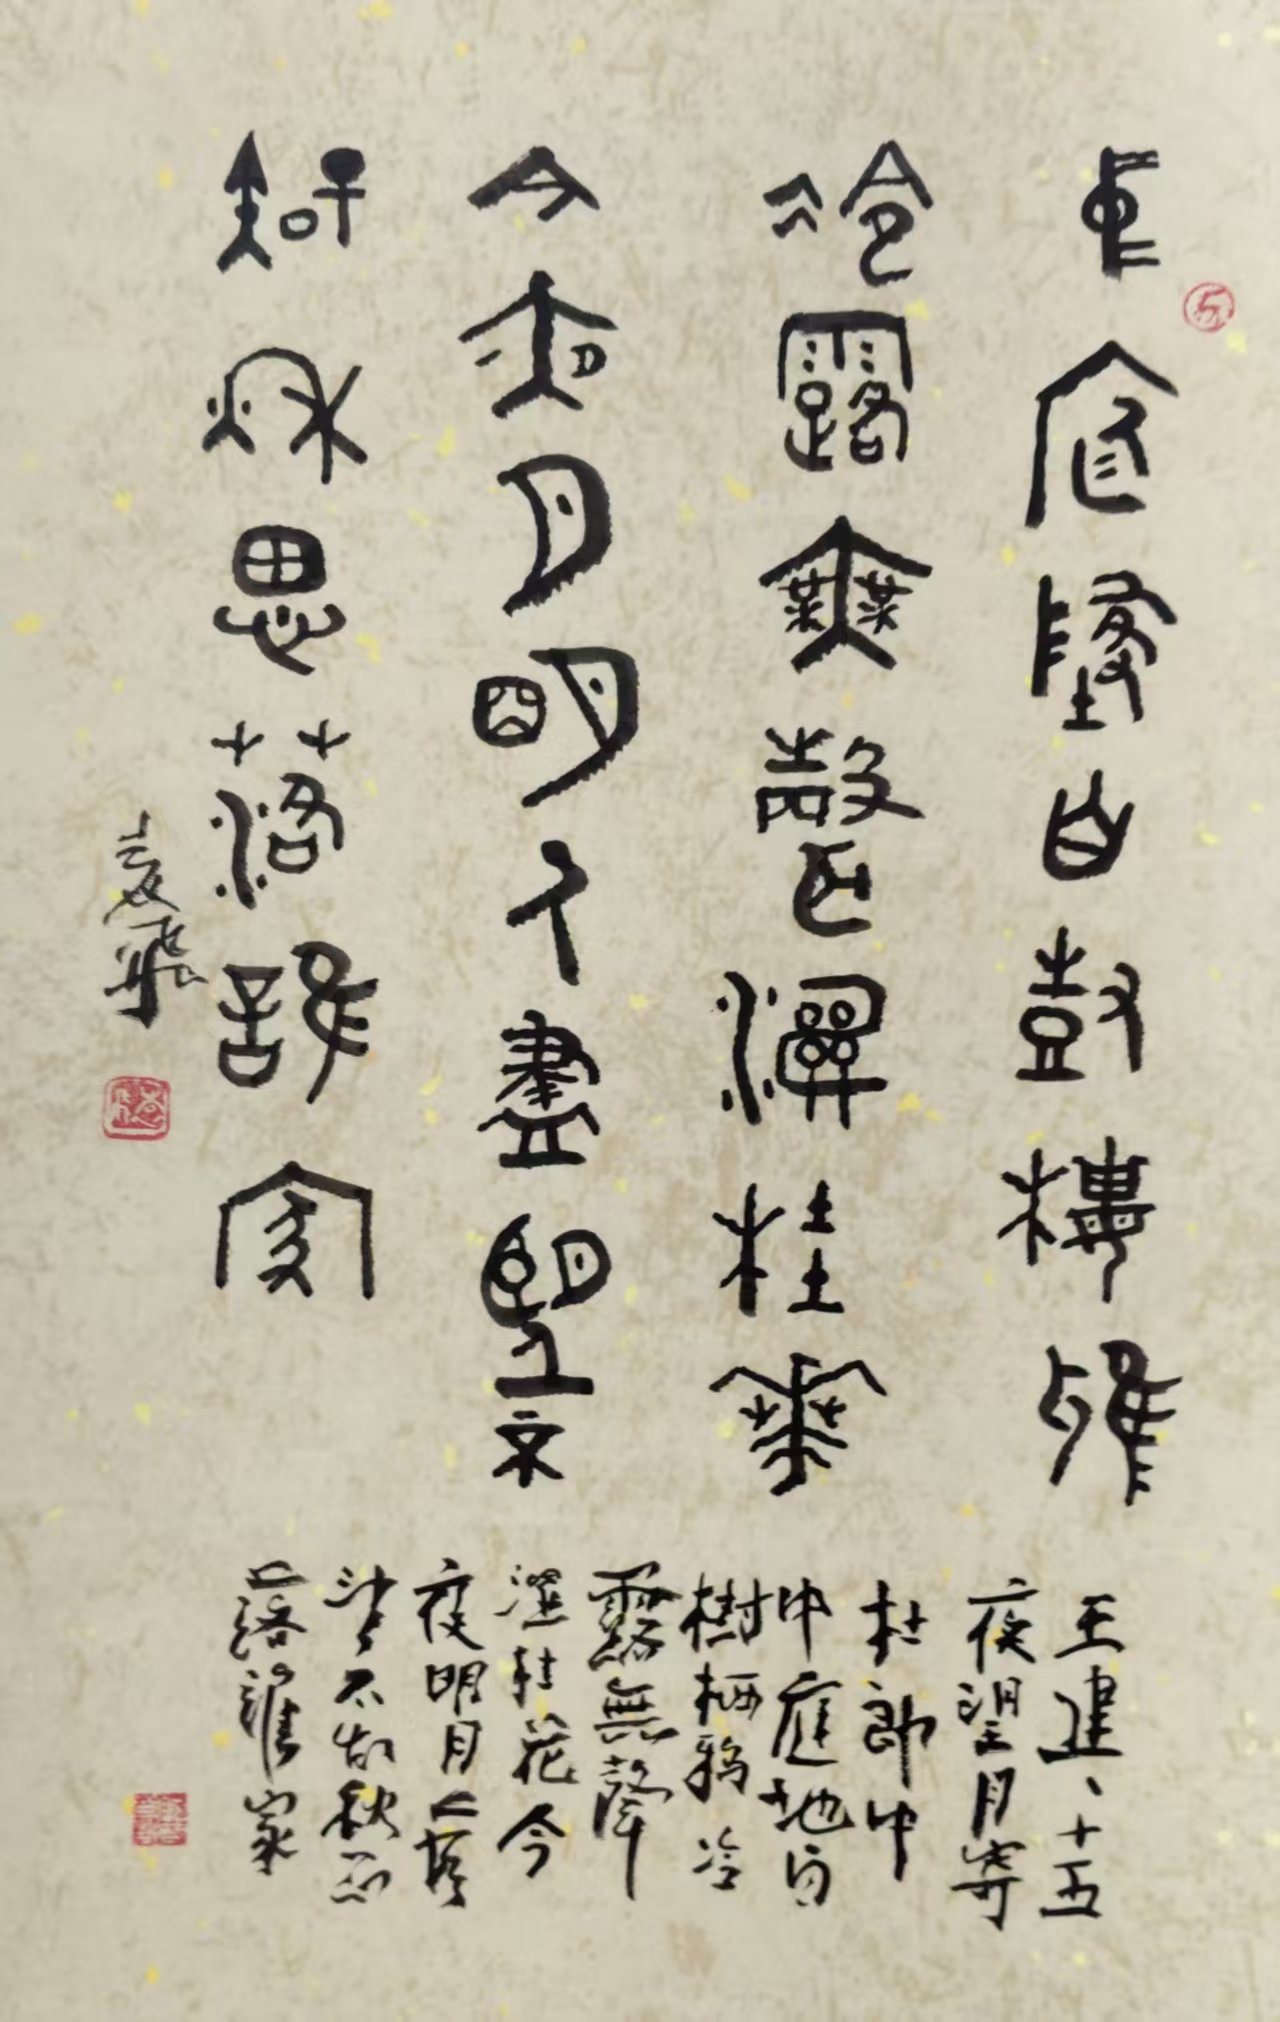 中庭地白尌棲鴉
冷露無聲濕桂華
今夜月明人盡望不
知秋思落誰家
王建、十五
夜望月寄
杜郎中
中庭地白
樹栖鸦冷
露無聲
濕桂花今
夜明月人尽
望不知秋思
落誰家
飛